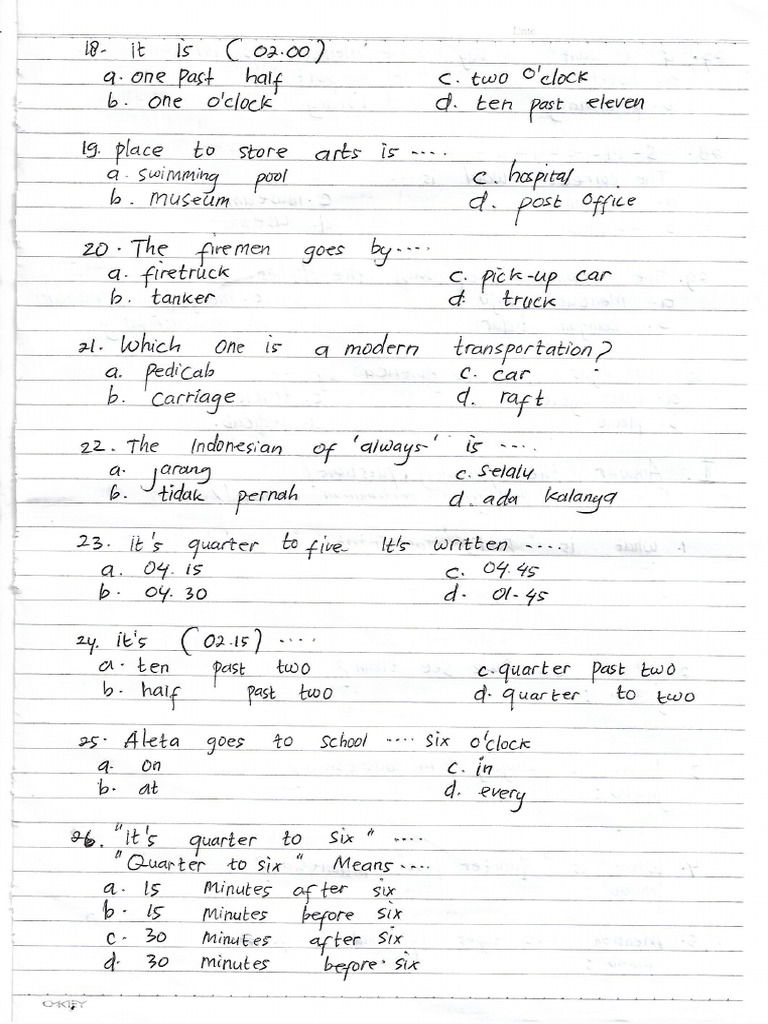 18. it is (02.00)
a. one past half c. two o'clock
b. one o'clock d. ten past eleven
19. place to store arts is ....
a. swimming pool c. hospital
b. museum d. post office
20. The firemen goes by....
a. firetruck c. pick-up car
b. tanker d. truck
21. Which one is a modern transportation?
a. pedicab c. car
b. carriage d. raft
22. The Indonesian of 'always' is ....
a. jarang c. selalu
b. tidak pernah d. ada kalanya
23. it's quarter to five It's written ....
a. 04.15 c. 04.45
b. 04.30 d. 01-45
24. it's (02.15) ....
a. ten past two c. quarter past two
b. half past two d. quarter to two
25. Aleta goes to school .... six o'clock
a. on c. in
b. at d. every
26. "It's quarter to six" ....
"Quarter to six" Means....
a. 15 Minutes after six
b. 15 Minutes before six
c. 30 Minutes after six
d. 30 minutes before six